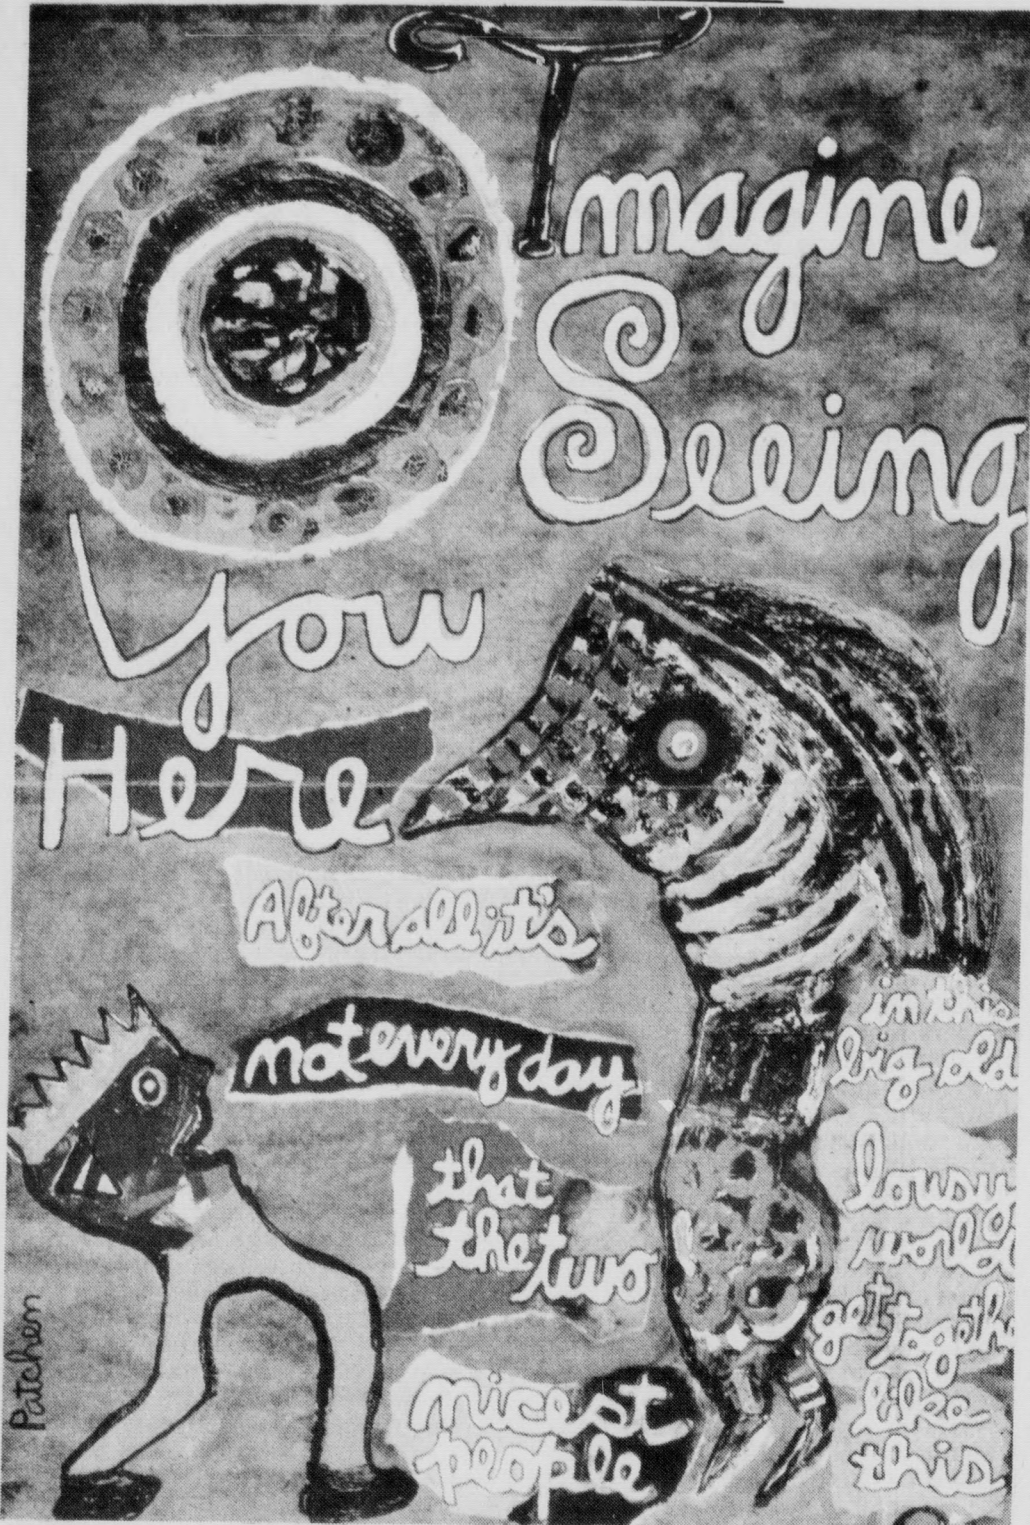 Imagine
Seeing
You
Here
After all it's
not every day
that
the two
nicest
people
in this
big old
lousy
world
get togethe
like
this
Patchen